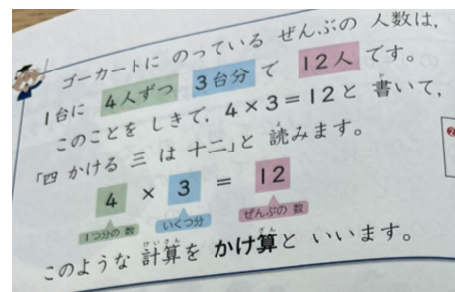 ゴーカートに のっている ぜんぶの 人数は,
1台に 4人ずつ 3台分で 12人 です。
このことを しきで, 4×3=12と 書いて,
「四 かける 三 は 十二」と 読みます。
4 × 3 = 12
1つ分の 数 いくつ分 ぜんぶの 数
このような 計算を かけ算と いいます。